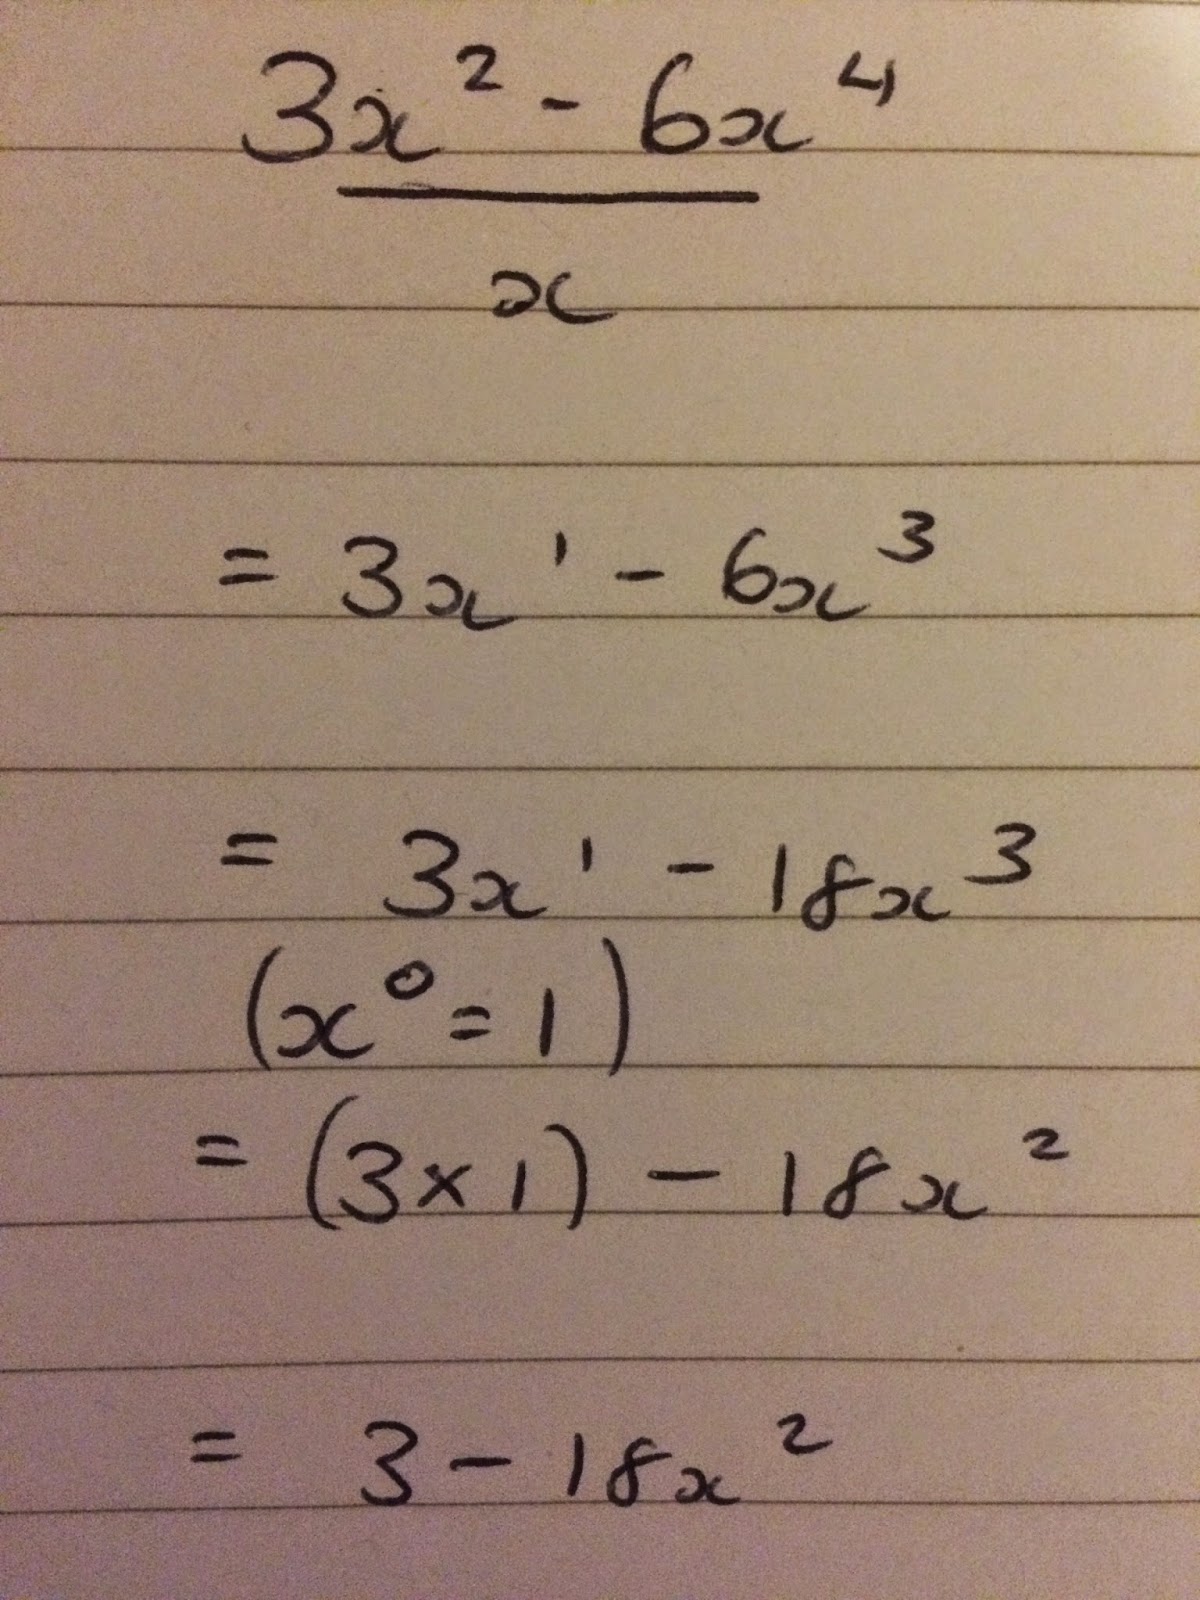 3x² - 6x⁴
x
= 3x¹ - 6x³
= 3x¹ - 18x³
(x⁰ = 1)
= (3 × 1) - 18x²
= 3 - 18x²